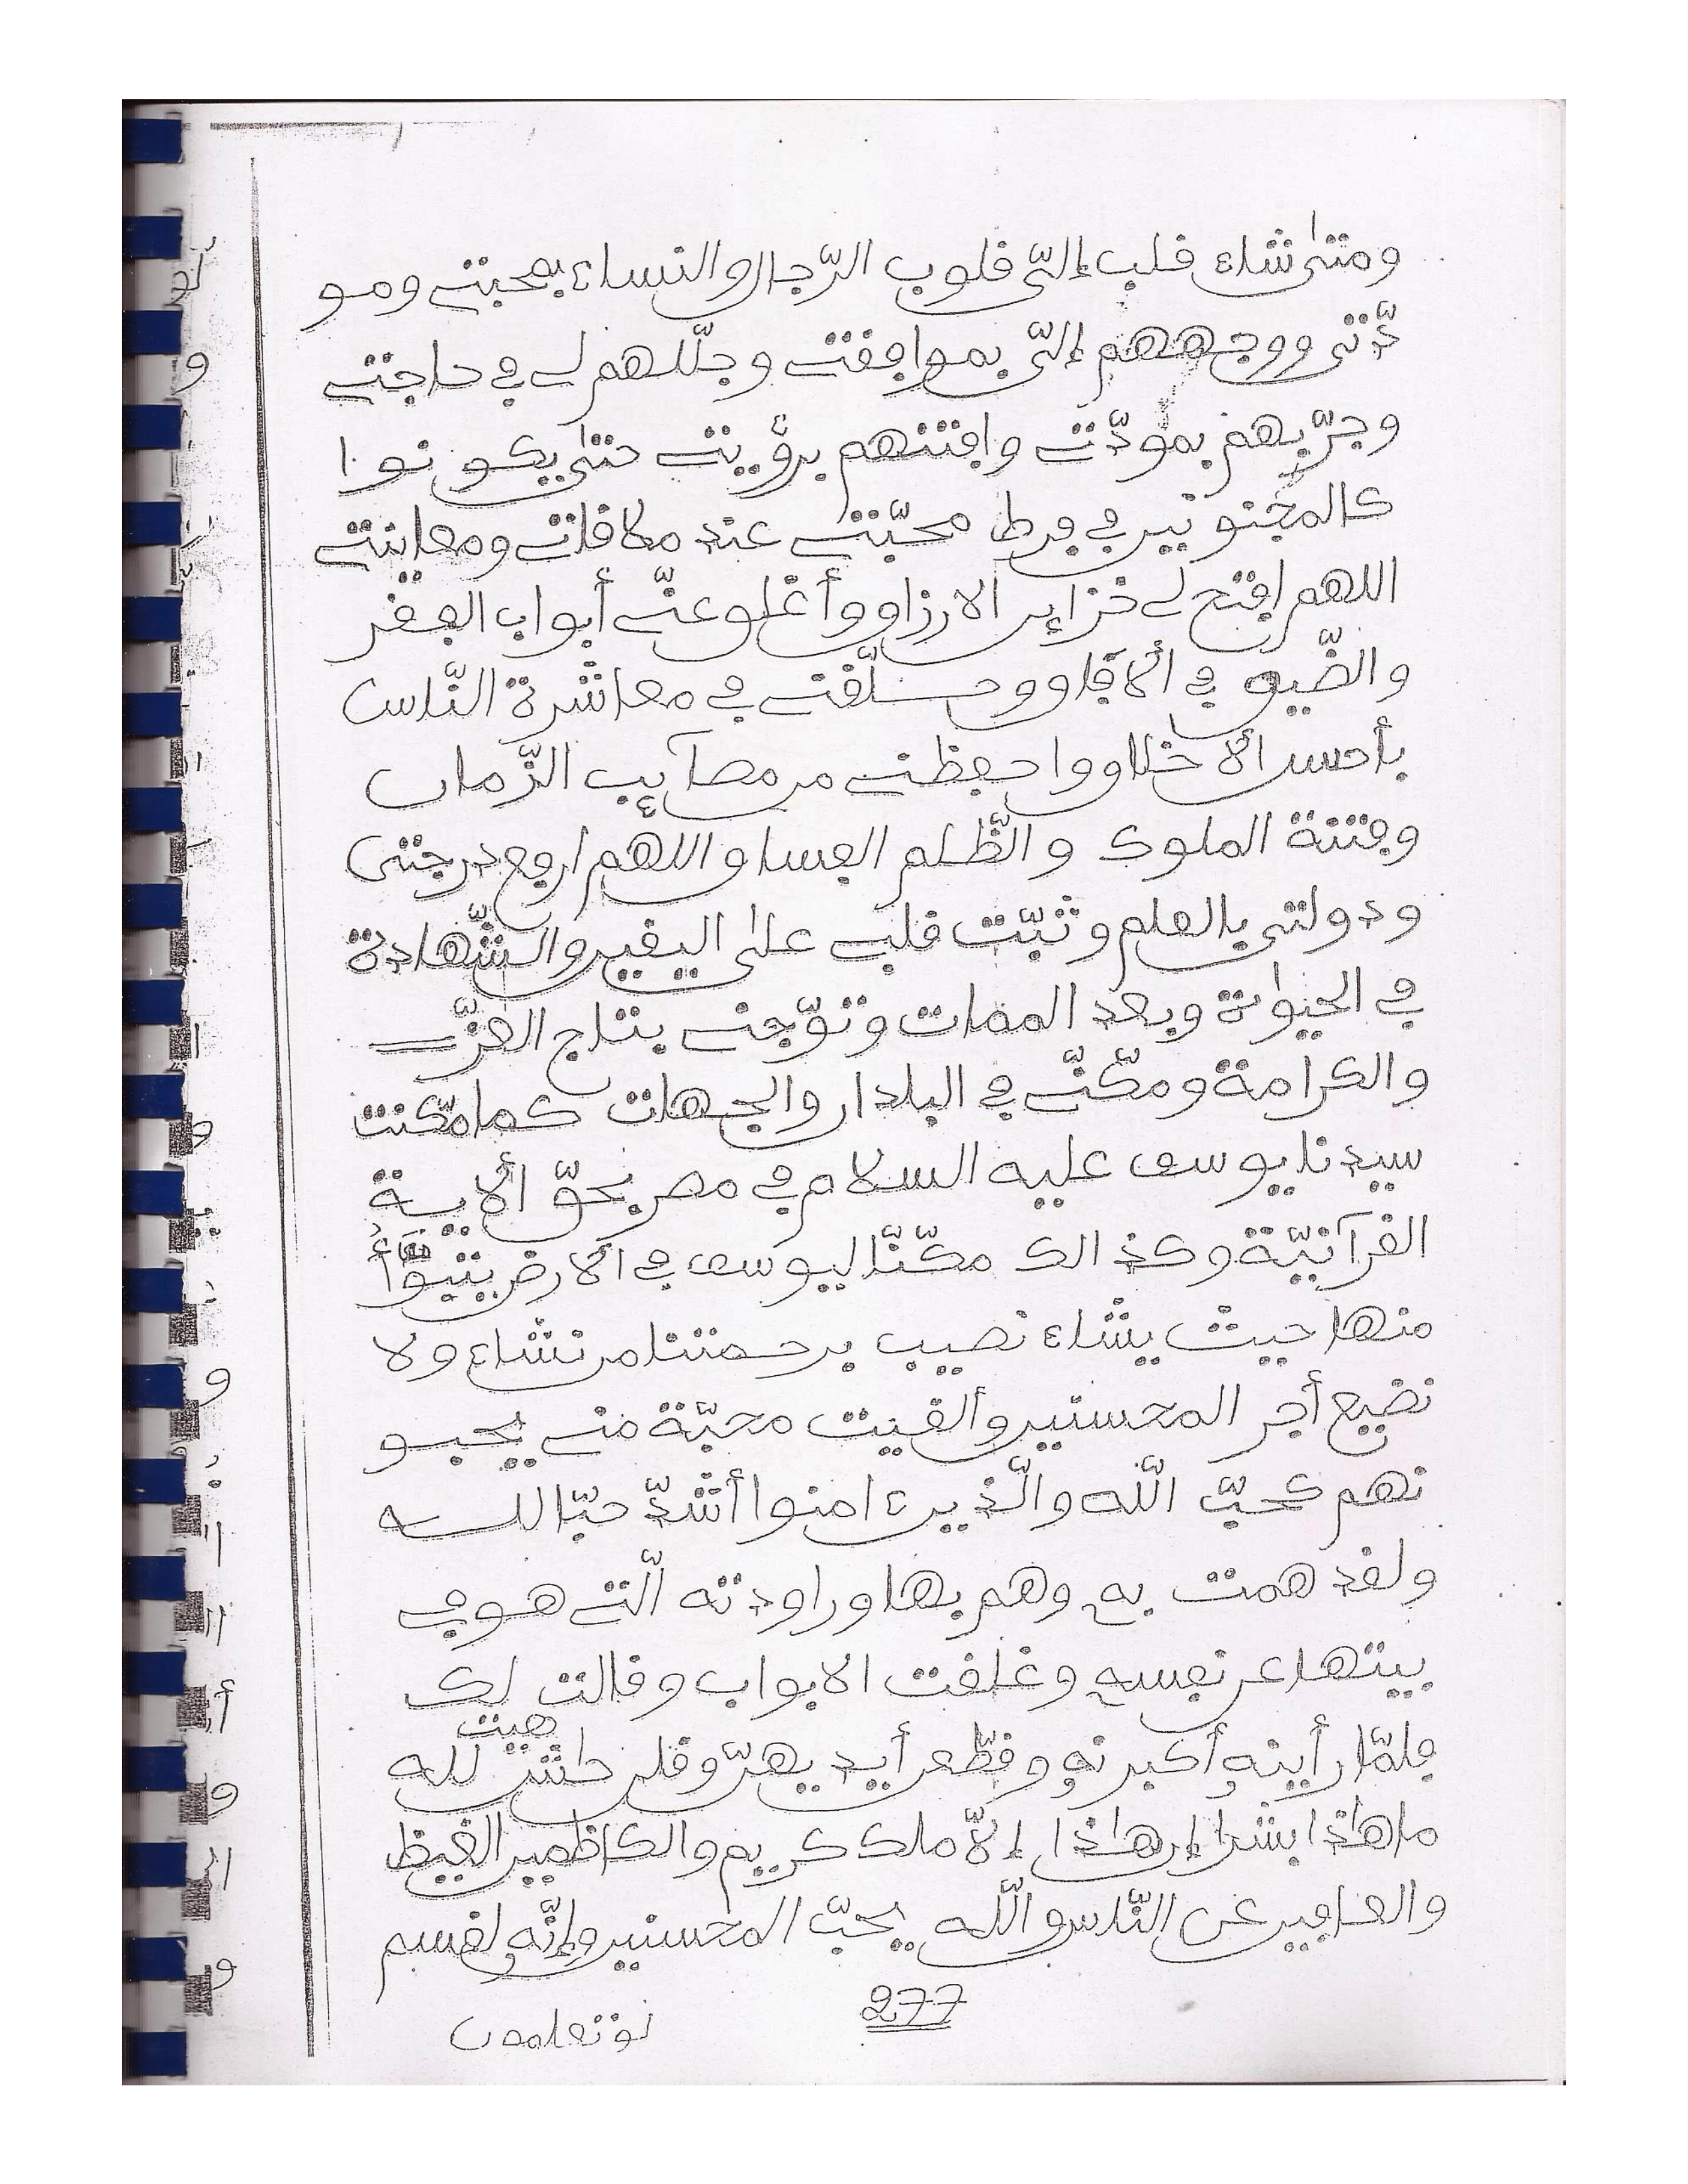 ومتى شاء قلب إلىّ قلوب الرّجال والنساء بمحبتى ومو
دّتى ووجههم إلىّ بموافقتى وجلّلهم لى فى حاجتى
وجرّبهم بمودّتى وافتنهم برؤيتى حتى يكونوا
كالمجنونين فى فرط محبّتى عند ملاقاتى ومعاينتى
اللهم افتح لى خزاين الارزاق وأغلق عنّى أبواب الفقر
والضّيق فى ألافاق وو فى معاشرة النّاس
بأحسن ألاخلاق واحفظنى من مصآئب الزّمان
وفتنة الملوك والظّلم الفساق اللهم ارفع درجتى
ودولتى بالعلم وثبّت قلبى على اليقين والشّهادة
فى الحيوة وبعد الممات وتوّجنى بتاج العزّ
والكرامة ومكّنّى فى البلدان والجهات كما مكّنت
سيدنا يوسف عليه السلام فى مصر بحقّ ألاية
القرآنيّة وكذالك مكّنّا ليوسف فى ألارض يتبوّأ
منها حيث يشاء نصيب برحمتنا من نشاء ولا
نضيع أجر المحسنين وألقيت محبّة منى يحبو
نهم كحبّ اللّه والّذين ءامنوا أشدّ حبّا لله
ولقد همت به وهم بها وراودته الّتى هو فى
بيتها عن نفسه وغلقت الابواب وقالت
هيت لك
فلمّا رأينه أكبرنه وقطّعن أيديهنّ وقلن حاش لله
ما هاذا بشرا إن هاذا إلاّ ملك كريم والكاظمين الغيظ
والعافين عن النّاس واللّه يحبّ المحسنين وإنّه لقسم
277
لو تعلمون